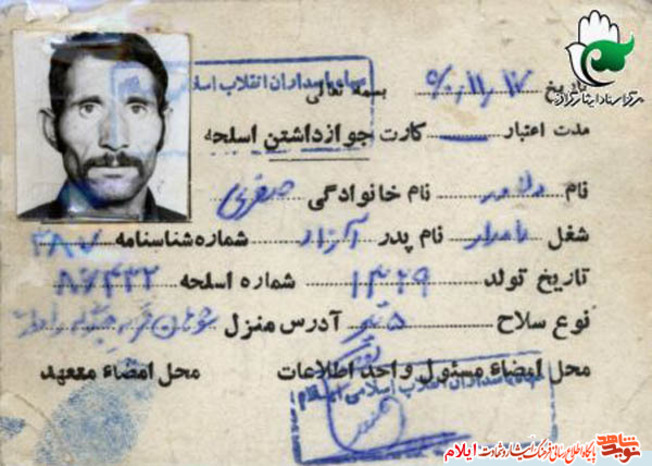 سپاه پاسداران انقلاب اسلامی
مرکز اسناد ایثارگران
بسمه تعالی
تاریخ ۶۰/۱۱/۱۷
مدت اعتبار کارت جواز داشتن اسلحه
نام نام خانوادگی صفری
شغل دامدار نام پدر آزاد شماره شناسنامه ۳۸۷
تاریخ تولد ۱۳۲۹ شماره اسلحه ۸۶۴۳۲
نوع سلاح ۵ تیر آدرس منزل
محل امضاء مسئول واحد اطلاعات محل امضاء متعهد
پاسداران انقلاب اسلامی
نوید شاهد
پایگاه اطلاع رسانی فرهنگ ایثار و شهادت ایلام